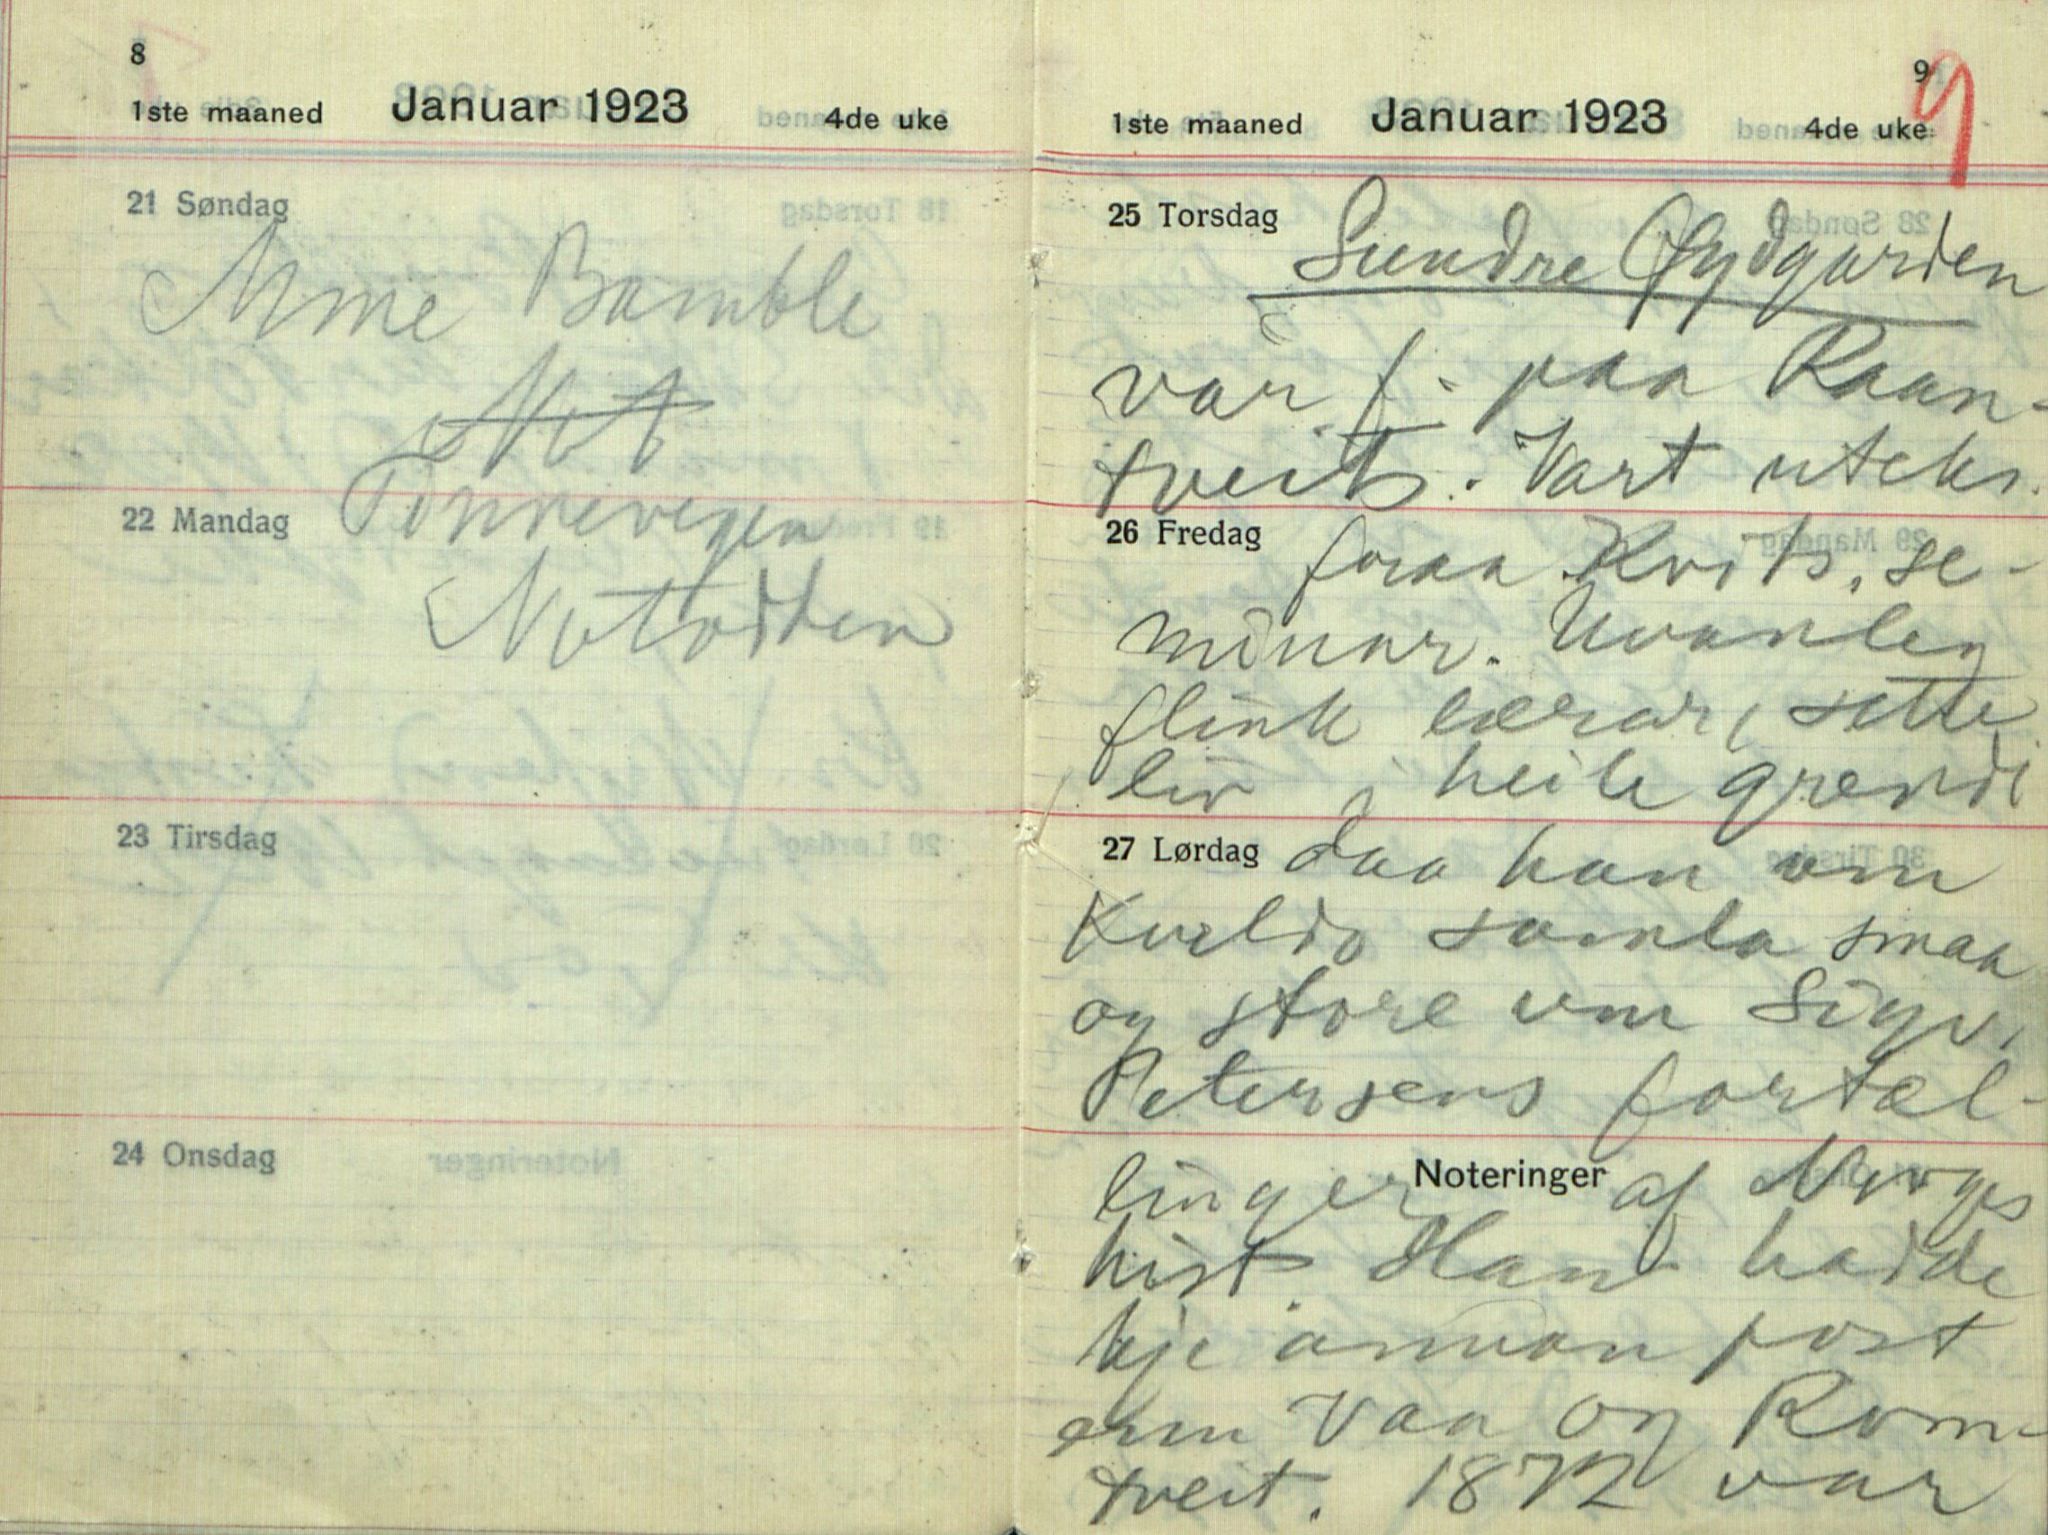 8
1ste maaned Januar 1923 4de uke
21 Søndag
Anne Bamble
Not
22 Mandag
Tinnevegen
Notodden
23 Tirsdag
24 Onsdag
9 9
1ste maaned Januar 1923 4de uke
25 Torsdag Sundre Øydgarden
var f. paa Raan-
tveit. Vart uteks.
26 Fredag fraa Kvits. se-
minar. Uvanleg
flink lærar, sette
liv i heile grendi
27 Lørdag daa han um
Kveldo samla smaa
og store um Sigv.
Petersens fortæl-
linger Noteringer af Norges
hist. Han hadde
kje annan post
enn Vaa og Rom-
tveit. 1872 var